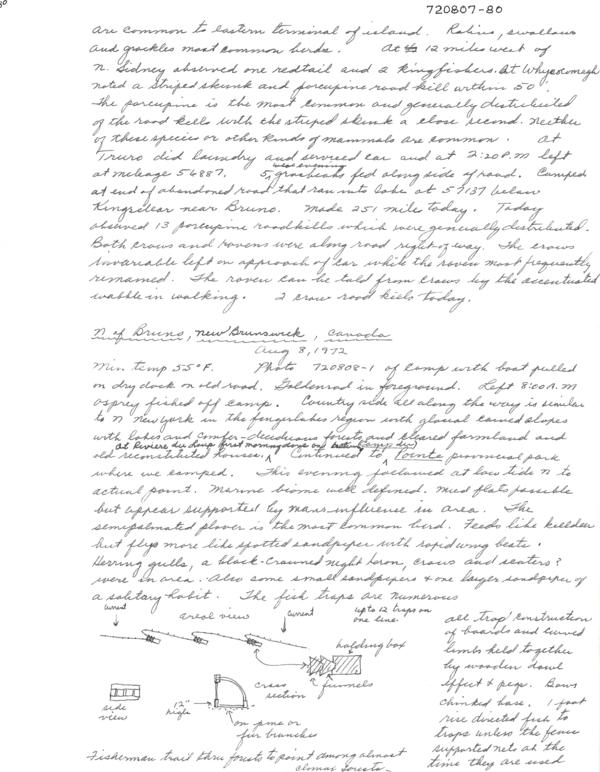 720807-80
are common to eastern terminal of island. Robins, swallows
and grackles most common birds. At 12 miles west of
N. Sidney observed one redtail and 2 kingfishers. At Whycocomagh
noted a striped skunk and porcupine road kill within 50'.
The porcupine is the most common and generally distributed
of the road kills with the striped skunk a close second. Neither
of these species or other kinds of mammals are common. At
Truro did laundry and serviced car and at 2:20 P.M left
at mileage 56887. 5 evening grosbeaks fed along side of road. Camped
at end of abandoned road that ran into lake at 57137 below
Kingsclear near Bruno. Made 251 miles today. Today
observed 13 porcupine roadkills which were generally distributed.
Both crows and ravens were along road right of way. The crows
invariable left on approach of car while the raven most frequently
remained. The raven can be told from crows by the accentuated
wabble in walking. 2 crow road kills today.
N of Bruno, New Brunswick, Canada
Aug 8, 1972
Min. temp 55°F. Photo 720808-1 of camp with boat pulled
on dry dock on old road. Goldenrod in foreground. Left 8:00 A.M
osprey fished off camp. Country side all along the way is similar
to N New York in the fingerlakes region with glacial carved slopes
with lakes and conifer-deciduous forests and cleared farmland and
old reconstituted houses. At Riviere du Loup first mourning dove one
Continued to Pointe provincial park
where we camped. This evening at low tide N to
actual point. Marine biome well defined. Mud flats possible
but appear supported by mans influence in area. The
semipalmated plover is the most common bird. Feeds like killdeer
but flys more like spotted sandpiper with rapid wing beats.
Herring gulls, a black-crowned night heron, crows and scoters?
were in area. Also some small sandpipers & one larger sandpiper of
a solitary habit. The fish traps are numerous
current
areal view
current
up to 12 traps on
one line.
holding box
funnels
side
view
12"
high
cross
section
on pine or
fir branches
all 'trap' construction
of boards and curved
limbs held together
by wooden dowl
effect & pegs. Bows
chinked base. 1 foot
rise directed fish to
traps unless the fence
supported nets at the
time they are used
Fisherman trail thru forests to point among almost
climax forests-